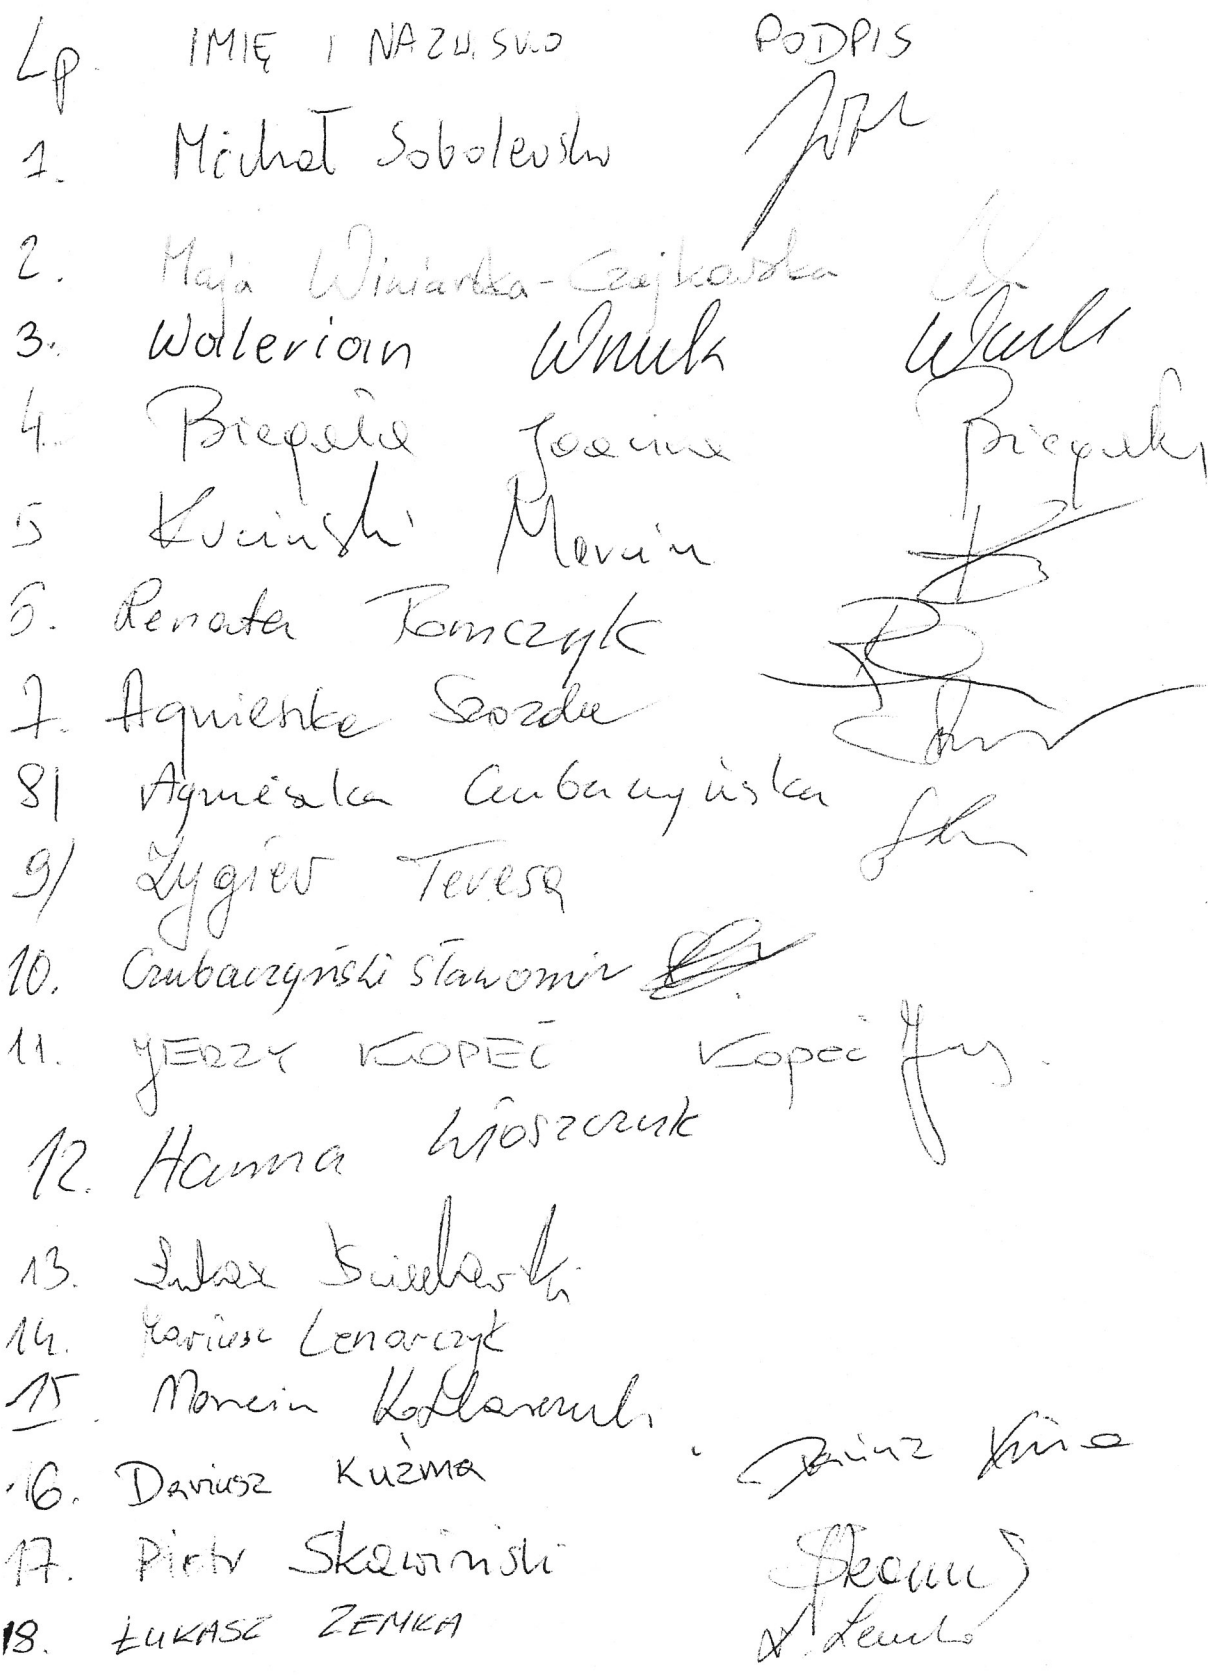 Lp. IMIĘ I NAZWISKO PODPIS
1. Michał Sobolewski
2. Maja Winiarska-Czajkowska
3. Walerian Wnuk Wnuk
4. Biegała Joanna Biegała
5 Kuciński Marcin
6. Renata Tomczyk
7. Agnieszka
8) Agnieszka Czubaczyńska
9) Zygier Teresa
10. Czubaczyński Sławomir
11. JERZY KOPEĆ Kopeć Jerzy
12. Hanna Włoszczuk
13. Łukasz
14. Mariusz Lenarczyk
15. Marcin
16. Dariusz Kuźma Dariusz Kuźma
17. Piotr Skawiński
18. ŁUKASZ ZEMKA Ł. Zemka